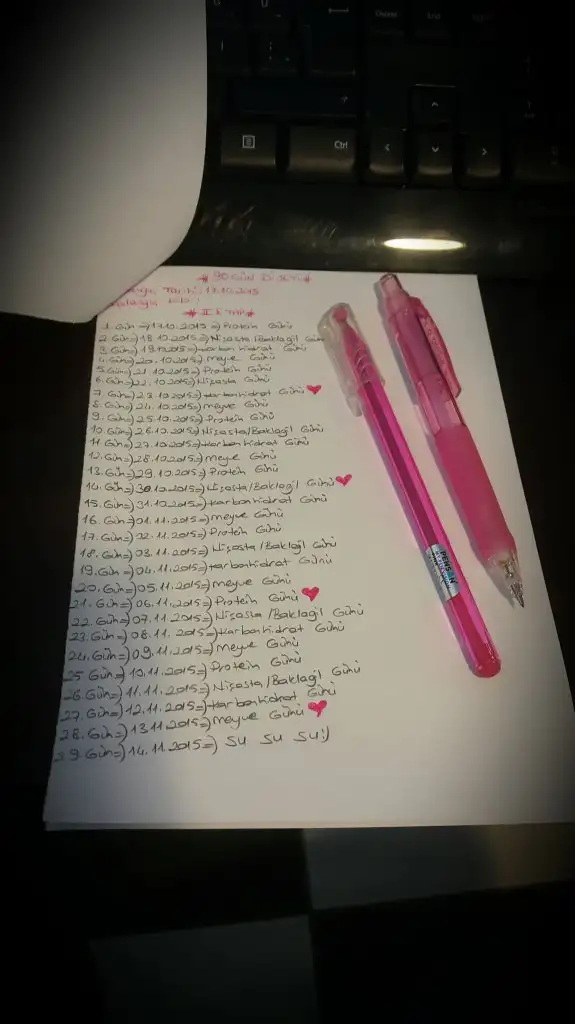 Delete End
Ctrl
* 90 GÜN DİYETİ *
17.10.2015
* II. ETAP *
1. Gün =) 17.10.2015 =) Protein Günü
2. Gün =) 18.10.2015 =) Nişasta/Baklagil Günü
3. Gün =) 19.10.2015 =) Karbonhidrat Günü
4. Gün =) 20.10.2015 =) Meyve Günü
5. Gün =) 21.10.2015 =) Protein Günü
6. Gün =) 22.10.2015 =) Nişasta Günü
7. Gün =) 23.10.2015 =) Karbonhidrat Günü ♥
8. Gün =) 24.10.2015 =) Meyve Günü
9. Gün =) 25.10.2015 =) Protein Günü
10. Gün =) 26.10.2015 =) Nişasta/Baklagil Günü
11. Gün =) 27.10.2015 =) Karbonhidrat Günü
12. Gün =) 28.10.2015 =) Meyve Günü
13. Gün =) 29.10.2015 =) Protein Günü
14. Gün =) 30.10.2015 =) Nişasta/Baklagil Günü ♥
15. Gün =) 31.10.2015 =) Karbonhidrat Günü
16. Gün =) 01.11.2015 =) Meyve Günü
17. Gün =) 02.11.2015 =) Protein Günü
18. Gün =) 03.11.2015 =) Nişasta/Baklagil Günü
19. Gün =) 04.11.2015 =) Karbonhidrat Günü
20. Gün =) 05.11.2015 =) Meyve Günü
21. Gün =) 06.11.2015 =) Protein Günü ♥
22. Gün =) 07.11.2015 =) Nişasta/Baklagil Günü
23. Gün =) 08.11.2015 =) Karbonhidrat Günü
24. Gün =) 09.11.2015 =) Meyve Günü
25. Gün =) 10.11.2015 =) Protein Günü
26. Gün =) 11.11.2015 =) Nişasta/Baklagil Günü
27. Gün =) 12.11.2015 =) Karbonhidrat Günü
28. Gün =) 13.11.2015 =) Meyve Günü ♥
29. Gün =) 14.11.2015 =) SU SU SU :)
PENSAN